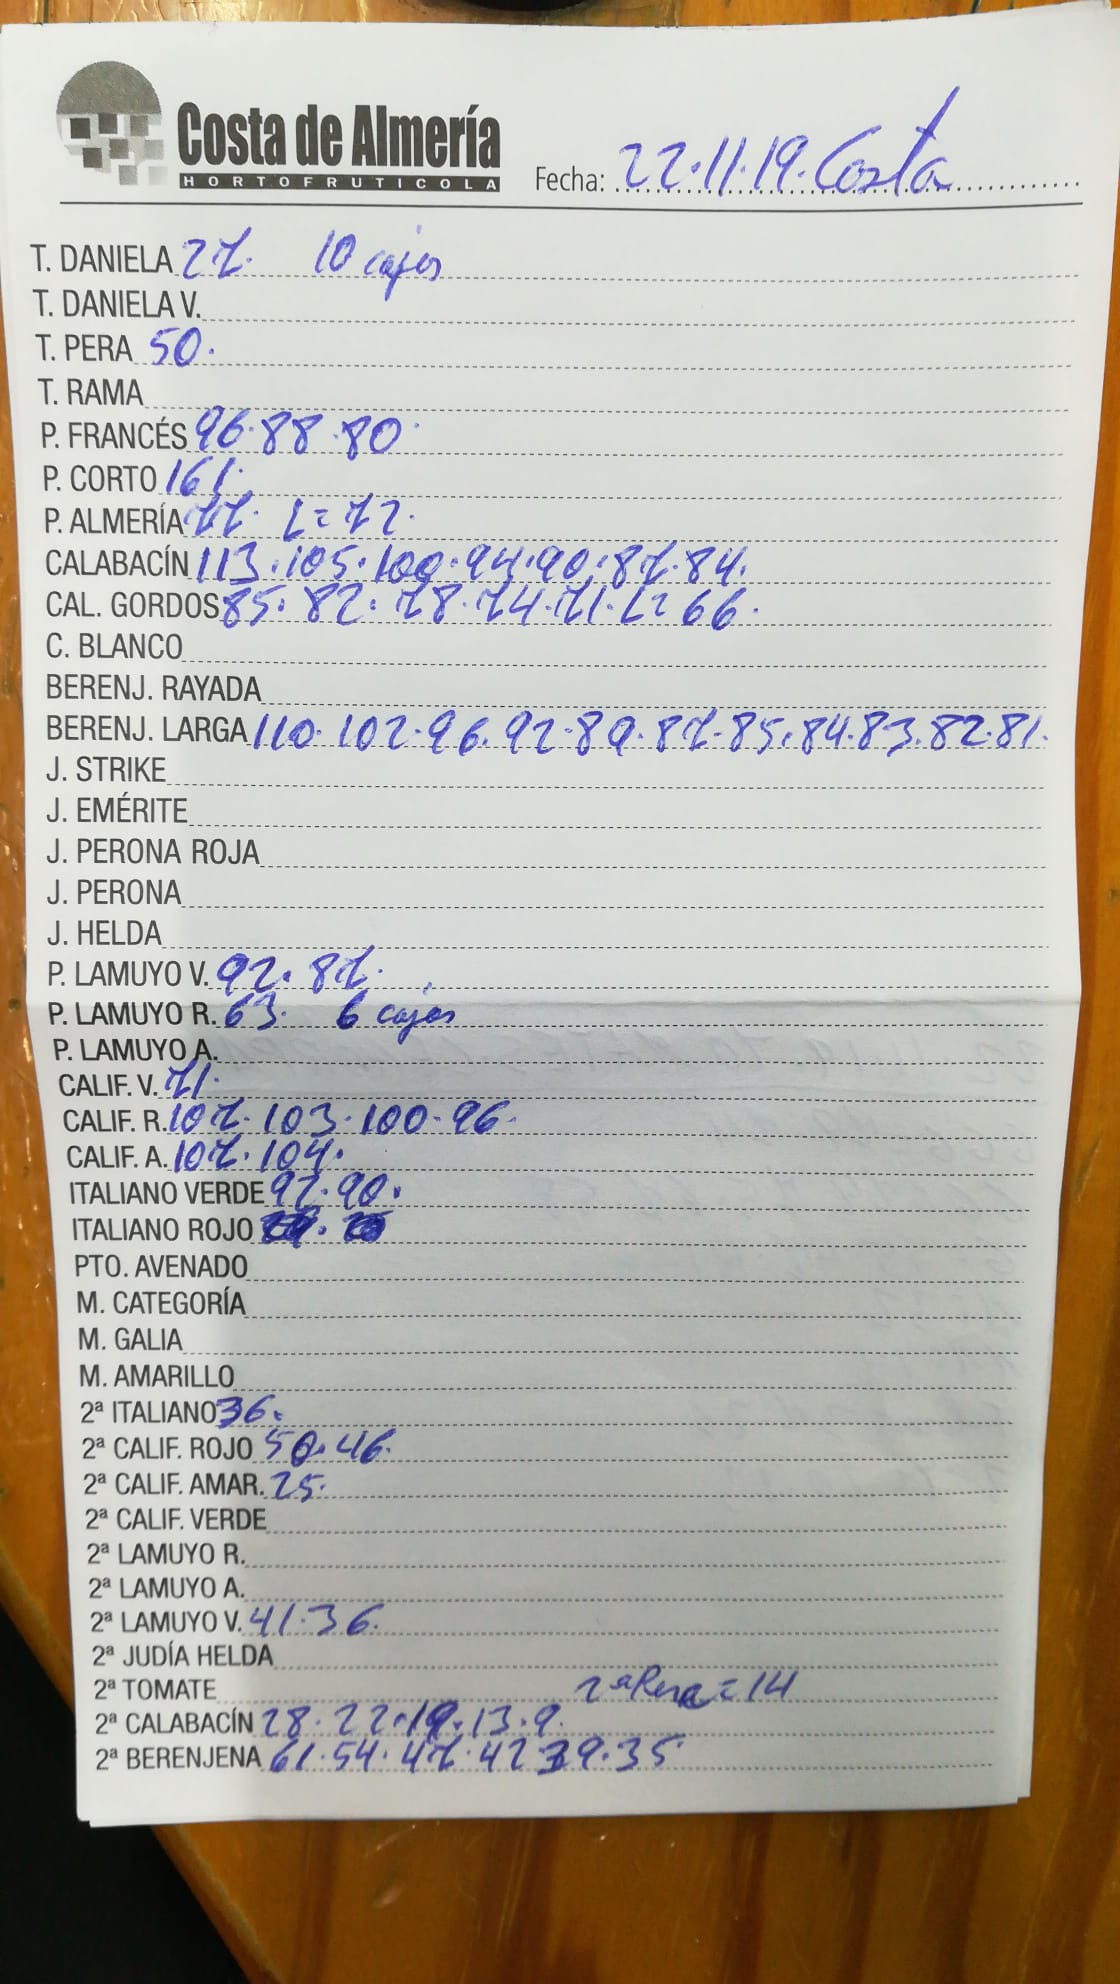 Costa de Almería
HORTOFRUTICOLA
Fecha: 22.11.19. Costa
T. DANIELA 27. 10 cajas
T. DANIELA V.
T. PERA 50.
T. RAMA
P. FRANCÉS 96.88.80
P. CORTO 161.
P. ALMERÍA 77. L=72.
CALABACÍN 113.105.100.94.90.87.84.
CAL. GORDOS 85.82.78.74.71.L=66.
C. BLANCO
BERENJ. RAYADA
BERENJ. LARGA 110.102.96.92.89.87.85.84.83.82.81.
J. STRIKE
J. EMÉRITE
J. PERONA ROJA
J. PERONA
J. HELDA
P. LAMUYO V. 92.87.
P. LAMUYO R. 63. 6 cajas
P. LAMUYO A.
CALIF. V. 71.
CALIF. R. 107.103.100.96.
CALIF. A. 107.104.
ITALIANO VERDE 97.90.
ITALIANO ROJO
PTO. AVENADO
M. CATEGORÍA
M. GALIA
M. AMARILLO
2ª ITALIANO 36.
2ª CALIF. ROJO 50.46.
2ª CALIF. AMAR. 25.
2ª CALIF. VERDE
2ª LAMUYO R.
2ª LAMUYO A.
2ª LAMUYO V. 41.36.
2ª JUDÍA HELDA
2ª TOMATE 2ª Pera=14
2ª CALABACÍN 28.22.19.13.9.
2ª BERENJENA 61.54.47.42 39.35.